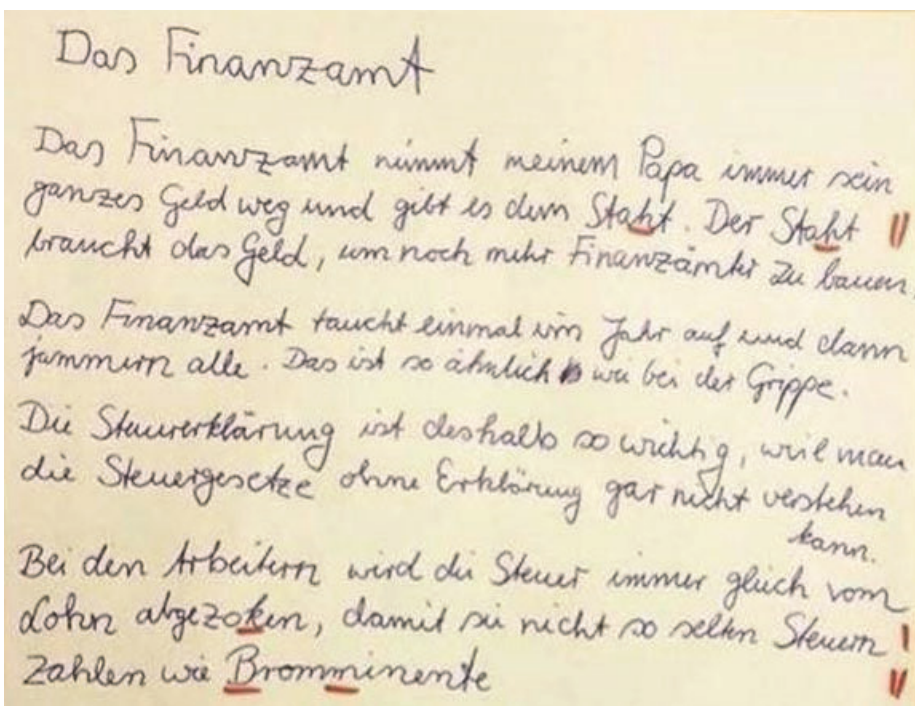 Das Finanzamt
Das Finanzamt nimmt meinem Papa immer sein
ganzes Geld weg und gibt es dem Staht. Der Staht
braucht das Geld, um noch mehr Finanzämter zu bauen.
Das Finanzamt taucht einmal im Jahr auf und dann
jammern alle. Das ist so ähnlich wie bei der Grippe.
Die Steuererklärung ist deshalb so wichtig, weil man
die Steuergesetze ohne Erklärung gar nicht verstehen
kann.
Bei den Arbeitern wird die Steuer immer gleich vom
Lohn abgezoken, damit sie nicht so selten Steuern
zahlen wie Bromminente